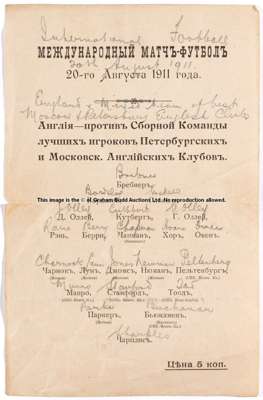 International Football
МЕЖДУНАРОДНЫЙ МАТЧЪ-ФУТБОЛЪ
20th August 1911.
20-го Августа 1911 года.
England v Mixed team of best
Moscow & Petersburg English Clubs
Англія—противъ Сборной Команды
лучшихъ игроковъ Петербургскихъ
и Московск. Англійскихъ Клубовъ.
This image is the © of Graham Budd Auctions Ltd. No reproduction without permission.
Д. Оллей, Кутбертъ, Г. Оллей,
Raine Berry Chapman Hoare Owen
Рэнъ, Берри, Чапманъ, Хоръ, Овенъ.
Charnock Lunn Jones Newman
Чарнокъ, Лунъ, Джонсъ, Нюманъ,
Munro Stanford Tod
Манро, Станфордъ, Тодъ,
Parker Buchanan
Паркеръ, Бьюкененъ,
Charples
Чарплзъ.
Цѣна 5 коп.